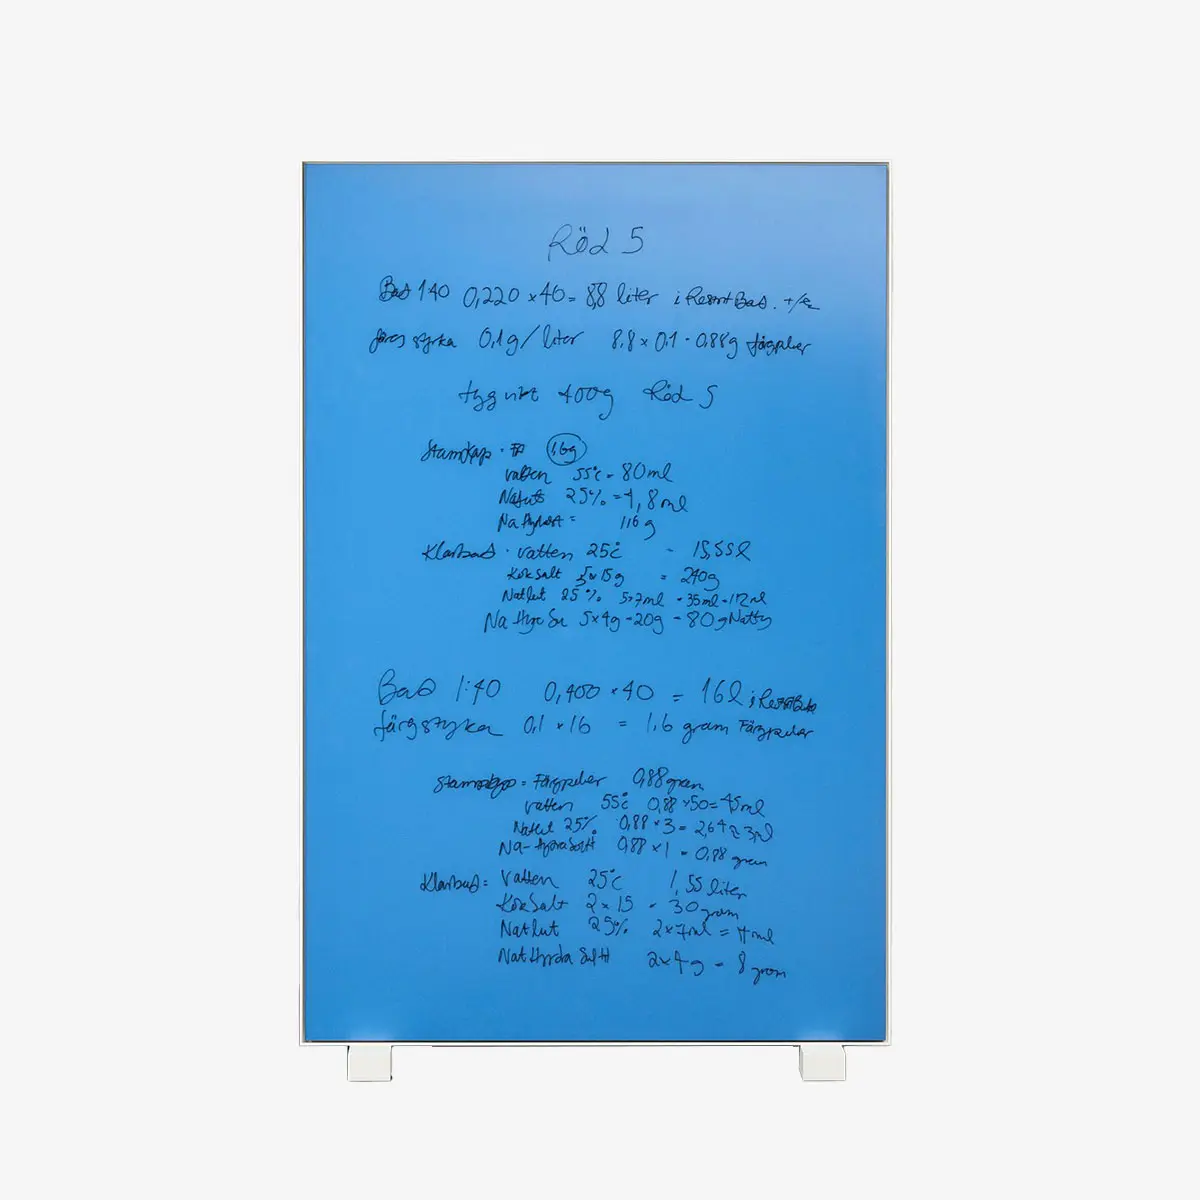 Röd 5
Bad 1:40 0,220 × 40 = 8,8 liter i Restrt Bad. +/-
färg styrka 0,1g/liter 8,8 × 0,1 - 0,88g färgpulver
tyg vikt 400g Röd 5
Stamkyp · 1,6g
vatten 55°C - 80 ml
Natlut 25% = 4,8 ml
Na Hydros = 1,6 g
Klarbad · vatten 25°C - 15,55 l
Koksalt 5×15g = 240g
Natlut 25% 5×7ml - 35ml - 112 ml
Na Hydro Su 5×4g - 20g - 80g
Bad 1:40 0,400 × 40 = 16 l i
färgstyrka 0,1 × 16 = 1,6 gram Färgpulver
Stamkyp = Färgpulver 0,88 gram
vatten 55°C 0,88 × 50 = 45 ml
Natlut 25% 0,88 × 3 = 2,64 ≈ 3 ml
Na- 0,88 × 1 = 0,88 gram
Klarbad = Vatten 25°C 1,55 liter
Kok Salt 2 × 15 - 30 gram
Nat lut 25% 2×7ml = 14 ml
Nat Hydro Sulfit 2×4 g - 8 gram